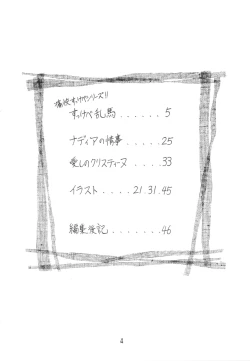 痛快すけべシリーズ!!
すけべ乱馬......5
ナディアの情事.....25
愛しのクリスティーヌ....33
イラスト....21.31.45
編集後記.......46
4